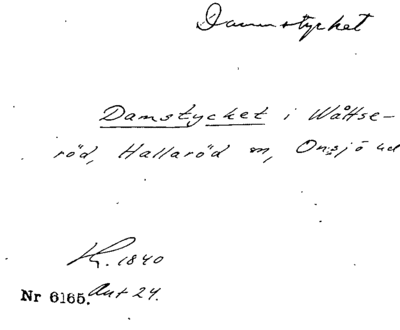 Dammstycket
Damstycket i Wåttse-
röd, Hallaröd sn, Onsjö hd
Kr. 1840
Nr 6165. Ant 24.